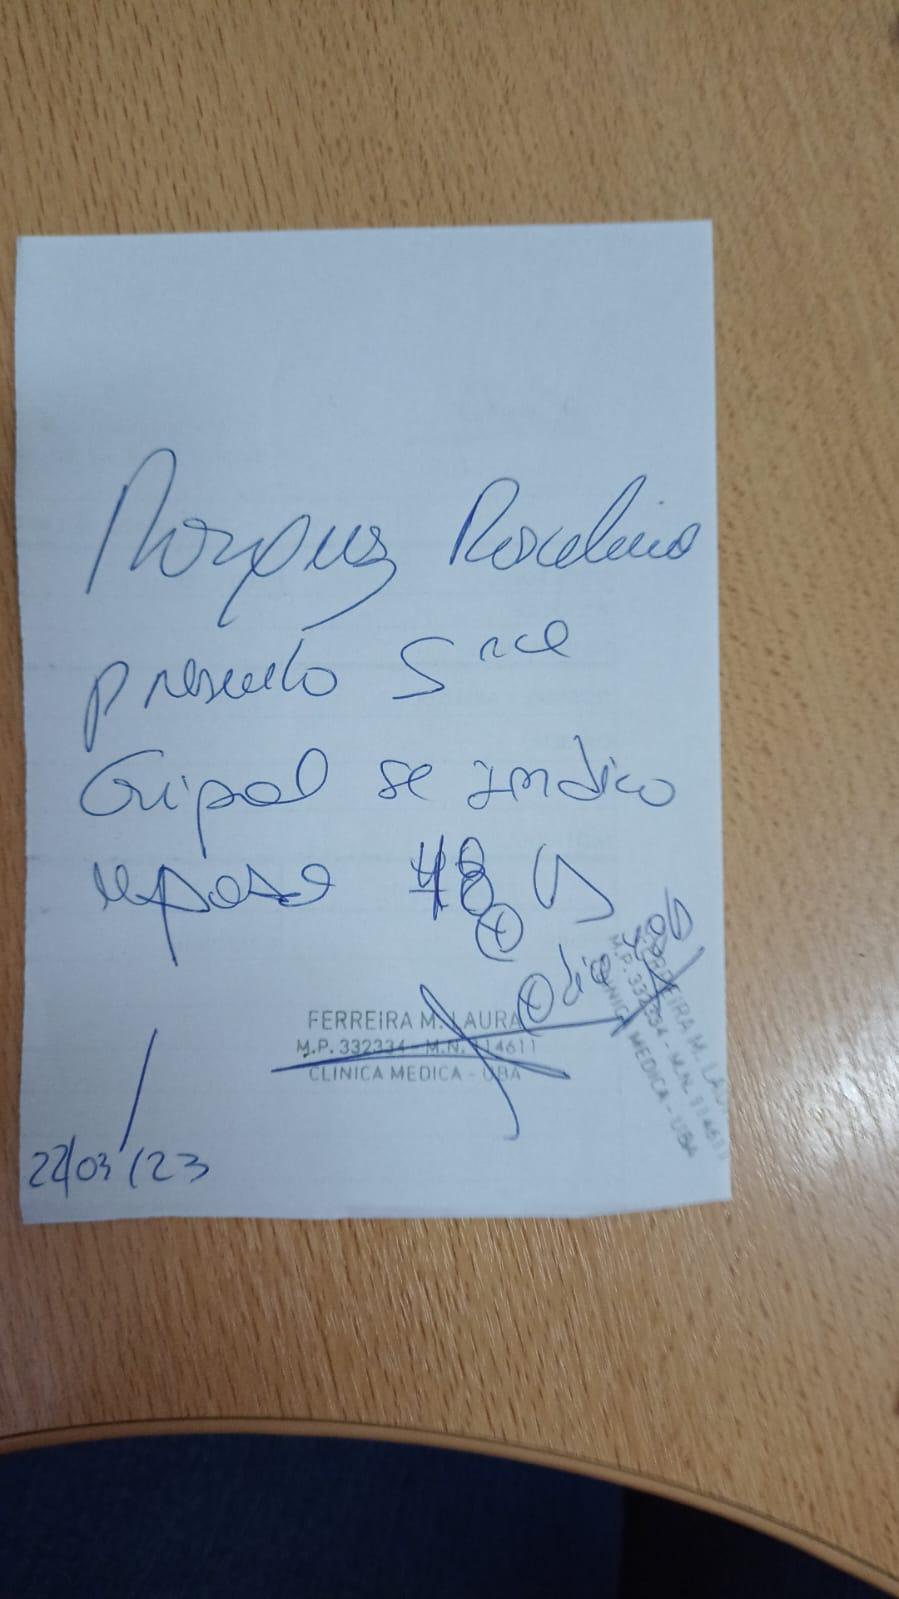 presento S nce
Gripal se indico
reposo 48 hs
FERREIRA M. LAURA
M.P. 332334 - M.N. 114611
CLINICA MEDICA - UBA
FERREIRA M. LAU
M.P. 332334 - M.N. 11461
CLINICA MEDICA - UBA
22/03/23